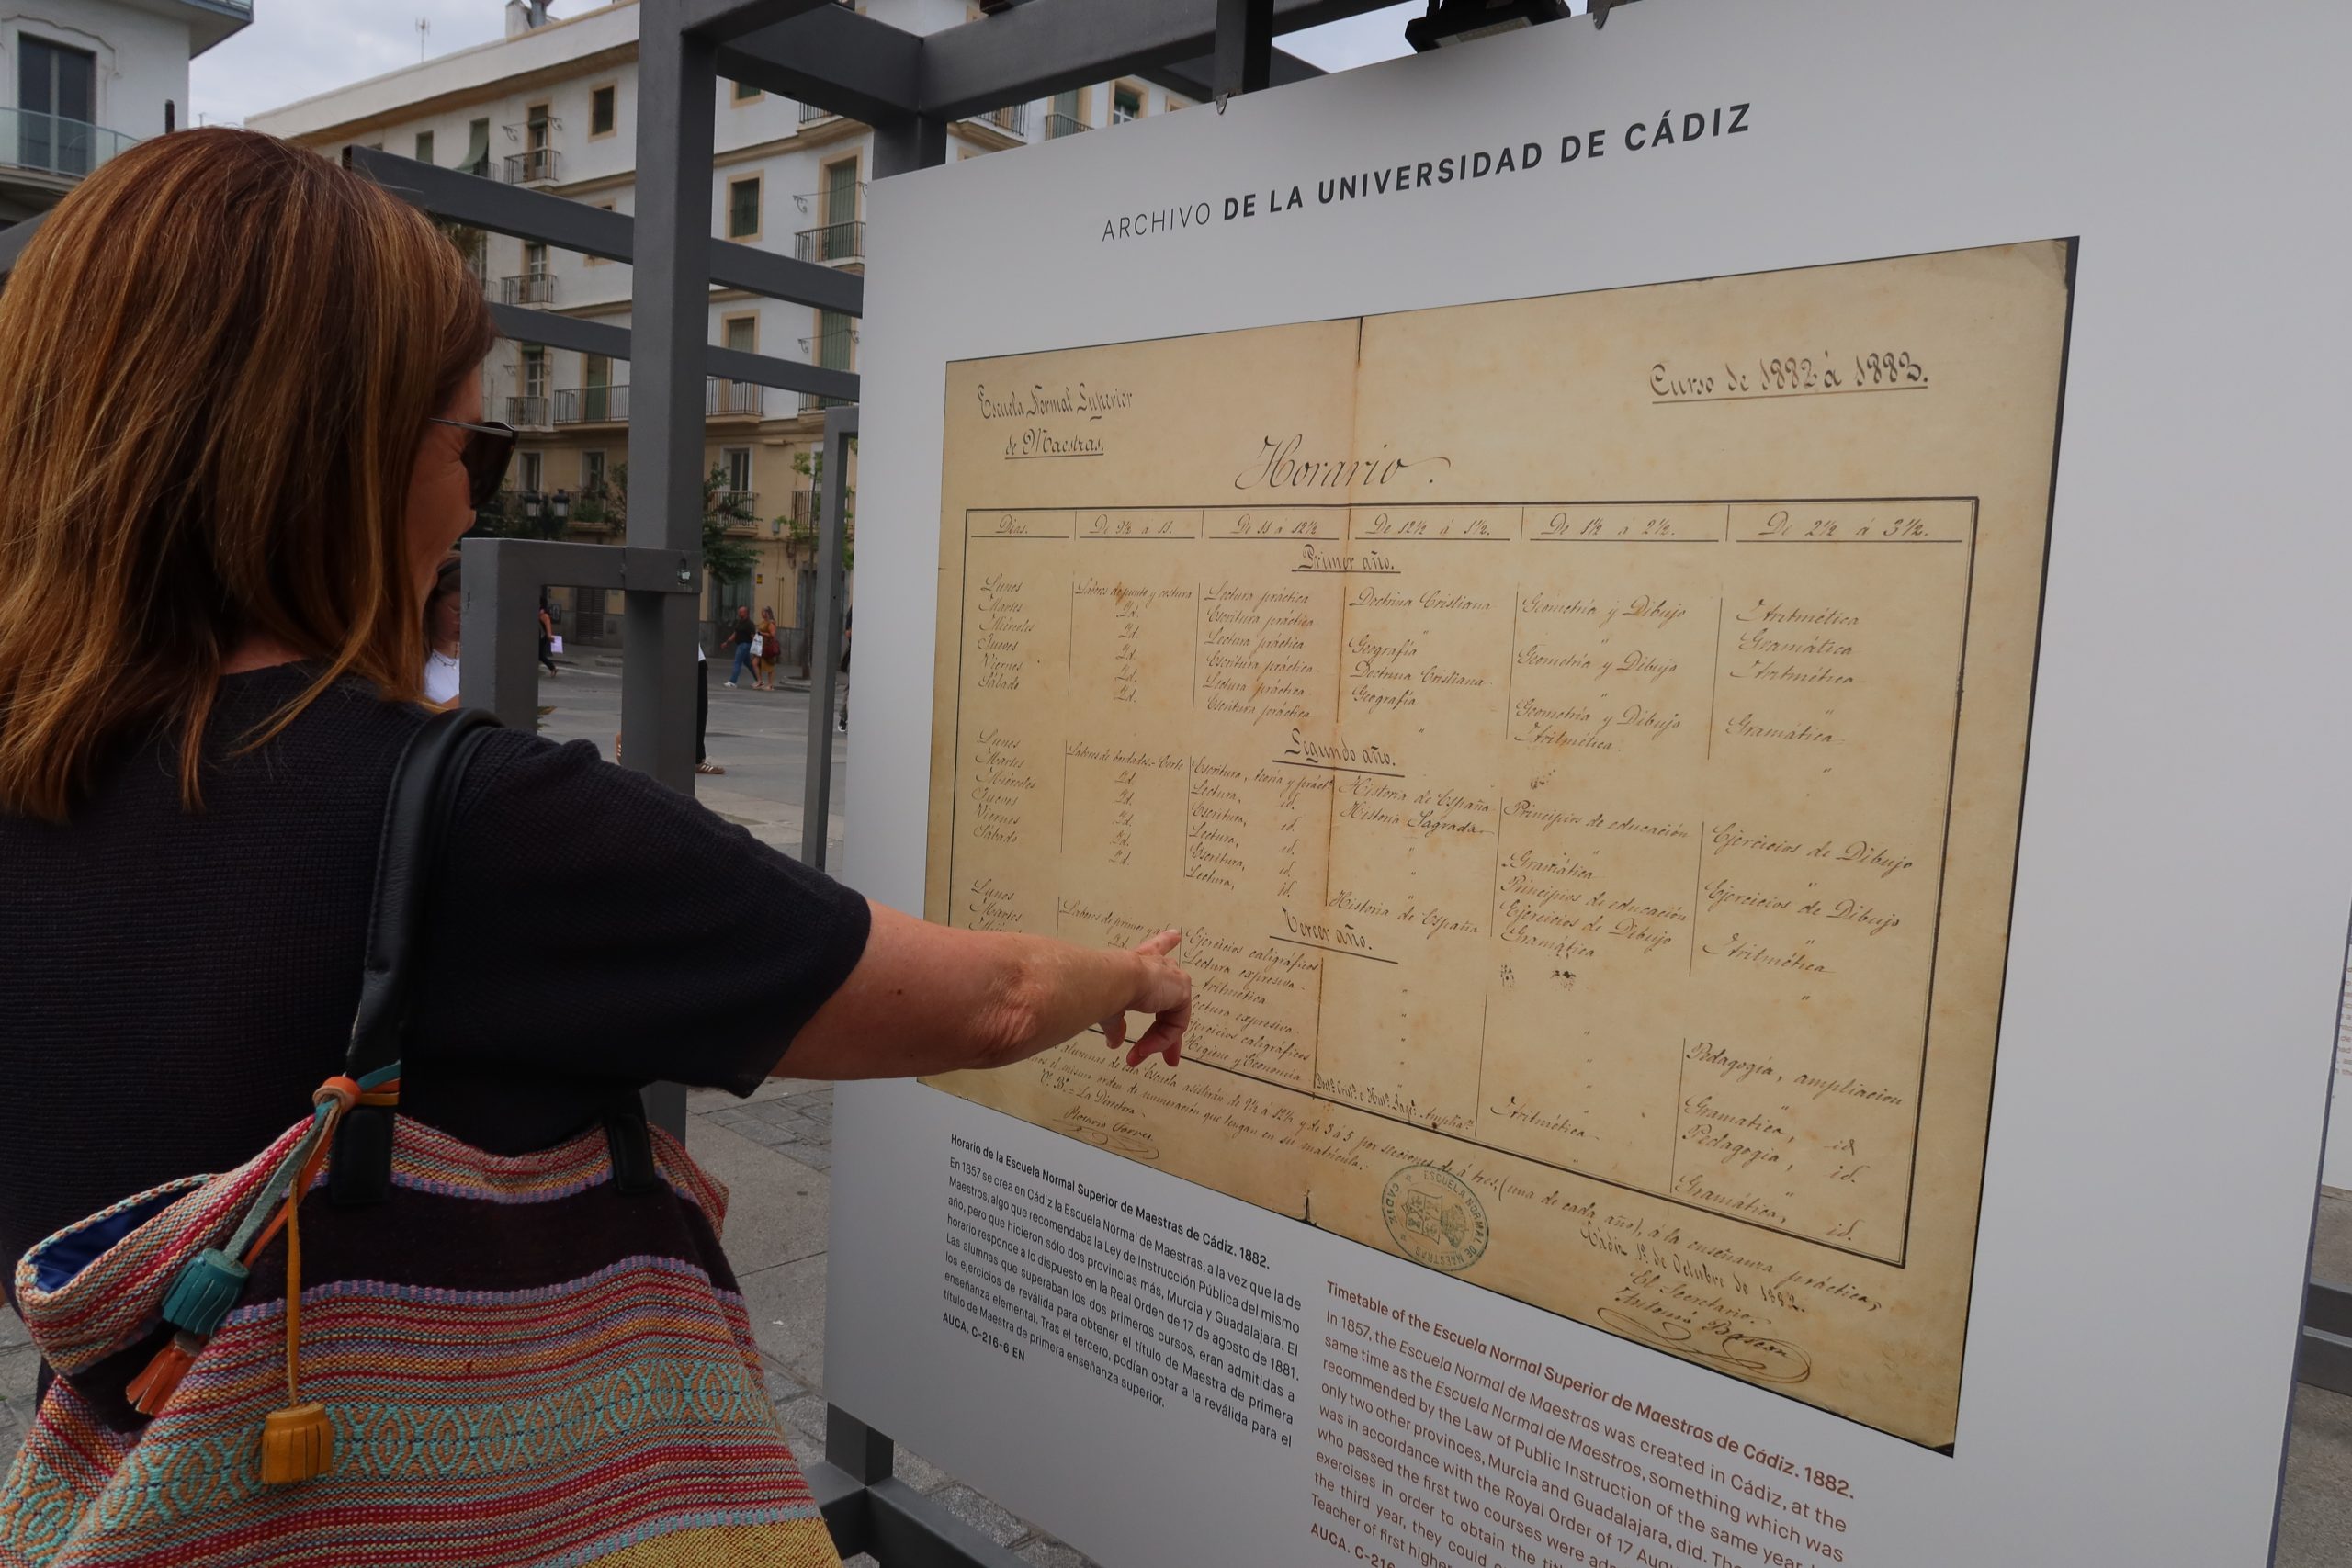 ARCHIVO DE LA UNIVERSIDAD DE CÁDIZ
Escuela Normal Superior
de Maestras.
Curso de 1882 á 1883.
Horario.
Dias. De 9½ a 11. De 11 a 12½ De 12½ á 1½. De 1½ a 2½. De 2½ á 3½.
Primer año.
Lunes Labores de punto y costura Lectura práctica Doctrina Cristiana Geometría y Dibujo Aritmética
Martes Id. Escritura práctica " " Gramática
Miércoles Id. Lectura práctica Geografía Geometría y Dibujo Aritmética
Jueves Id. Escritura práctica Doctrina Cristiana " "
Viernes Id. Lectura práctica Geografía Geometría y Dibujo Gramática
Sábado Id. Escritura práctica " Aritmética. "
Segundo año.
Lunes Labores de bordados-Corte Escritura, teoría y práct. Historia de España Principios de educación Ejercicios de Dibujo
Martes Id. Lectura, id. Historia Sagrada " "
Miércoles Id. Escritura, id. " Gramática Ejercicios de Dibujo
Jueves Id. Lectura, id. " Principios de educación "
Viernes Id. Escritura, id. Historia de España Ejercicios de Dibujo Aritmética
Sábado Id. Lectura, id. Gramática "
Tercer año.
Lunes Labores de primor y Ejercicios caligráficos " " Pedagogía, ampliacion
Martes Id. Lectura expresiva " " "
Aritmética " " Gramatica, id
ectura expresiva " " Pedagogia, id.
jercicios caligráficos " " "
Higiene y Economía Aritmética Gramática, id.
alumnas de esta Escuela asistirán de 9½ á 12½ y de 3 á 5 por secciones de á tres, (una de cada año), á la enseñanza práctica,
el mismo orden de numeración que tengan en su matrícula.
V.º B.º = La Directora Cádiz 1.º de Octubre de 1882.
Rosario Torres El Secretario.
ESCUELA NORMAL DE MAESTRAS CADIZ
Horario de la Escuela Normal Superior de Maestras de Cádiz. 1882.
En 1857 se crea en Cádiz la Escuela Normal de Maestras, a la vez que la de
Maestros, algo que recomendaba la Ley de Instrucción Pública del mismo
año, pero que hicieron sólo dos provincias más, Murcia y Guadalajara. El
horario responde a lo dispuesto en la Real Orden de 17 de agosto de 1881.
Las alumnas que superaban los dos primeros cursos, eran admitidas a
los ejercicios de reválida para obtener el título de Maestra de primera
enseñanza elemental. Tras el tercero, podían optar a la reválida para el
título de Maestra de primera enseñanza superior.
AUCA. C-216-6 EN
Timetable of the Escuela Normal Superior de Maestras de Cádiz. 1882.
In 1857, the Escuela Normal de Maestras was created in Cádiz, at the
same time as the Escuela Normal de Maestros, something which was
recommended by the Law of Public Instruction of the same year,
only two other provinces, Murcia and Guadalajara, did. The
was in accordance with the Royal Order of 17 Augu
who passed the first two courses were adm
exercises in order to obtain the titl
the third year, they could
Teacher of first higher
AUCA. C-216